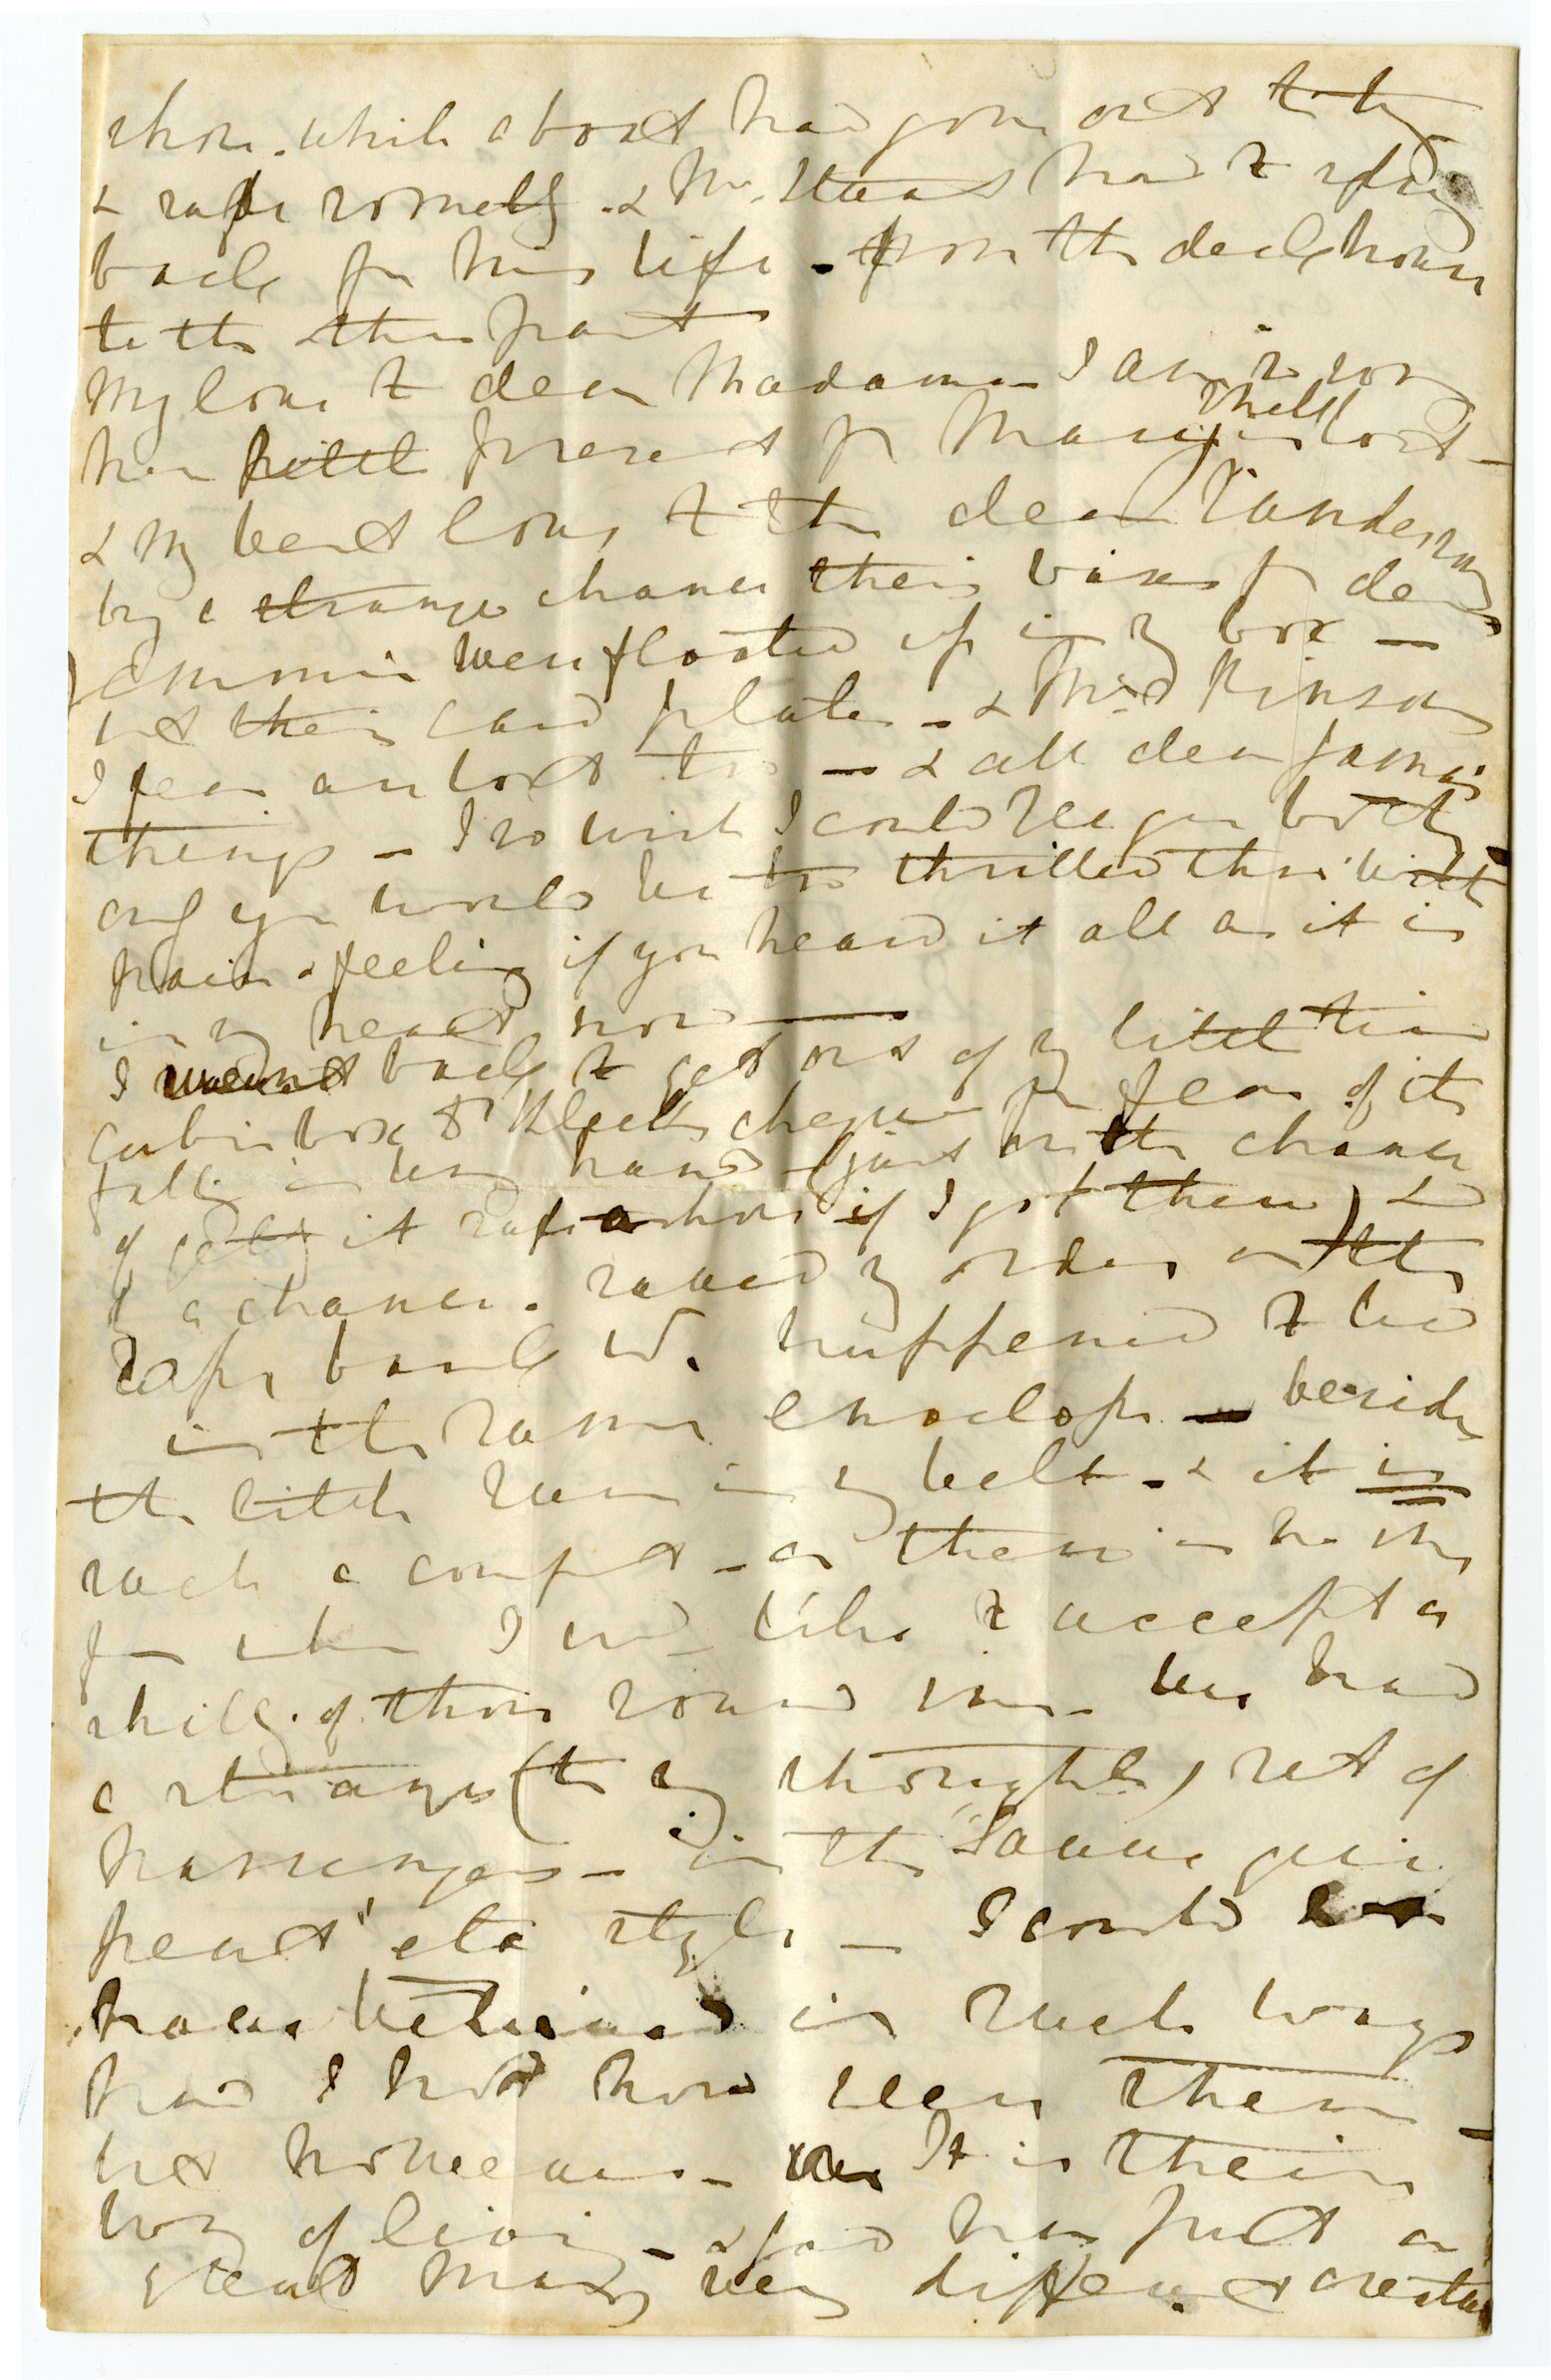 shore. while a boat had gone out to try
& save somebody. & Mr. had to spring
back for his life - from the deck house
to the other part
My love to dear Madame - I am so sorry
her little present for Mary is lost -
& my best love to the dear
by a strange chance their vases for dear
Emmie were floated up in my box -
not their card plates - & Mrs.
I fear are lost too - & all dear
things - I so wish I could see you both
only you would be too thrilled thro' with
pain & feeling if you heard it all as it is
in my heart now
I went back to get out of my little tin
cabin box cheque for fear of its
falling in wrong hands - (just on the chance
of getting it safe ashore if I got there) &
by a chance. saved my order on the
Cape bank wh. happened to be
in the same envelope - beside
the little sum in my belt - & it is
such a comfort - as there is no one
from whom I wd. like to accept a
shillg. of those round me - We had
a strange (to my thoughts) set of
passengers - in the "
" etc style - I could
have believed in such ways
had I not now seen them -
but no one - It is their
way of living - & God has put a
great many very different creatures